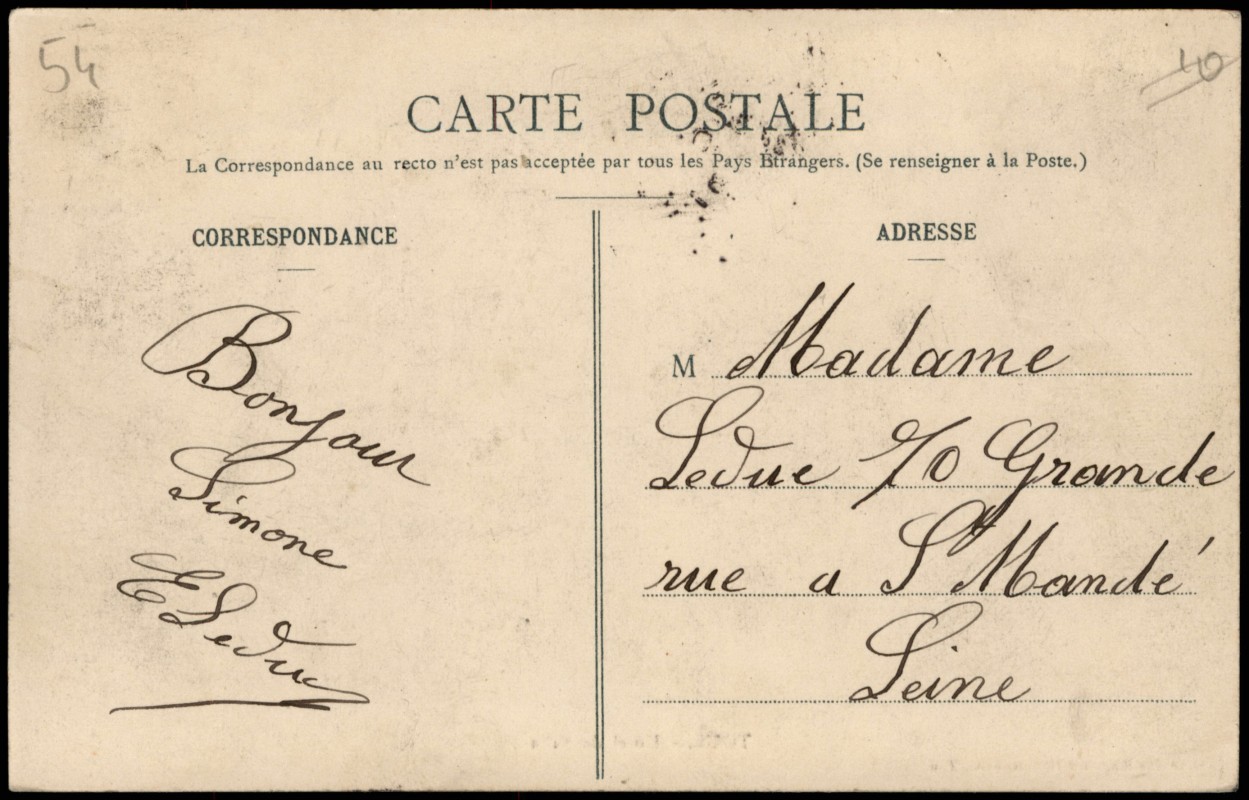 54
10
CARTE POSTALE
La Correspondance au recto n'est pas acceptée par tous les Pays Etrangers. (Se renseigner à la Poste.)
CORRESPONDANCE
Bonjour
Simone
E Leduc
ADRESSE
M Madame
Leduc 70 Grande
rue a St Mandé
Seine